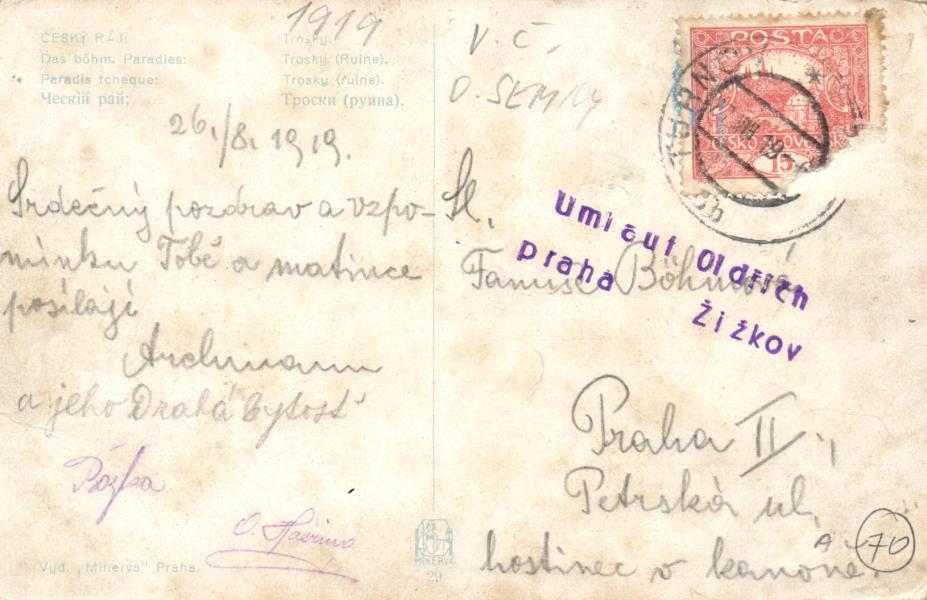 1919
ČESKÝ RÁJ: Trosky.
Das böhm. Paradies: Trosky (Ruine).
Paradis tcheque: Trosky (ruine).
Ческій рай: Троски (руина).
26./8. 1919.
Srdečný pozdrav a vzpo-
mínku Tobě a matince
posílají
Archmann
a jeho Drahá bytost
Růžka
Vyd. „Minerva" Praha.
MINERVA
29
V. Č.
O. SEMILY
POŠTA
ČESKO-SLOVENSKÁ
15
TURNOV
Sl.
Böhmova
Umlauf Oldřich
praha Žižkov
Praha II.,
Petrská ul.
hostinec v kanóně.
A 70